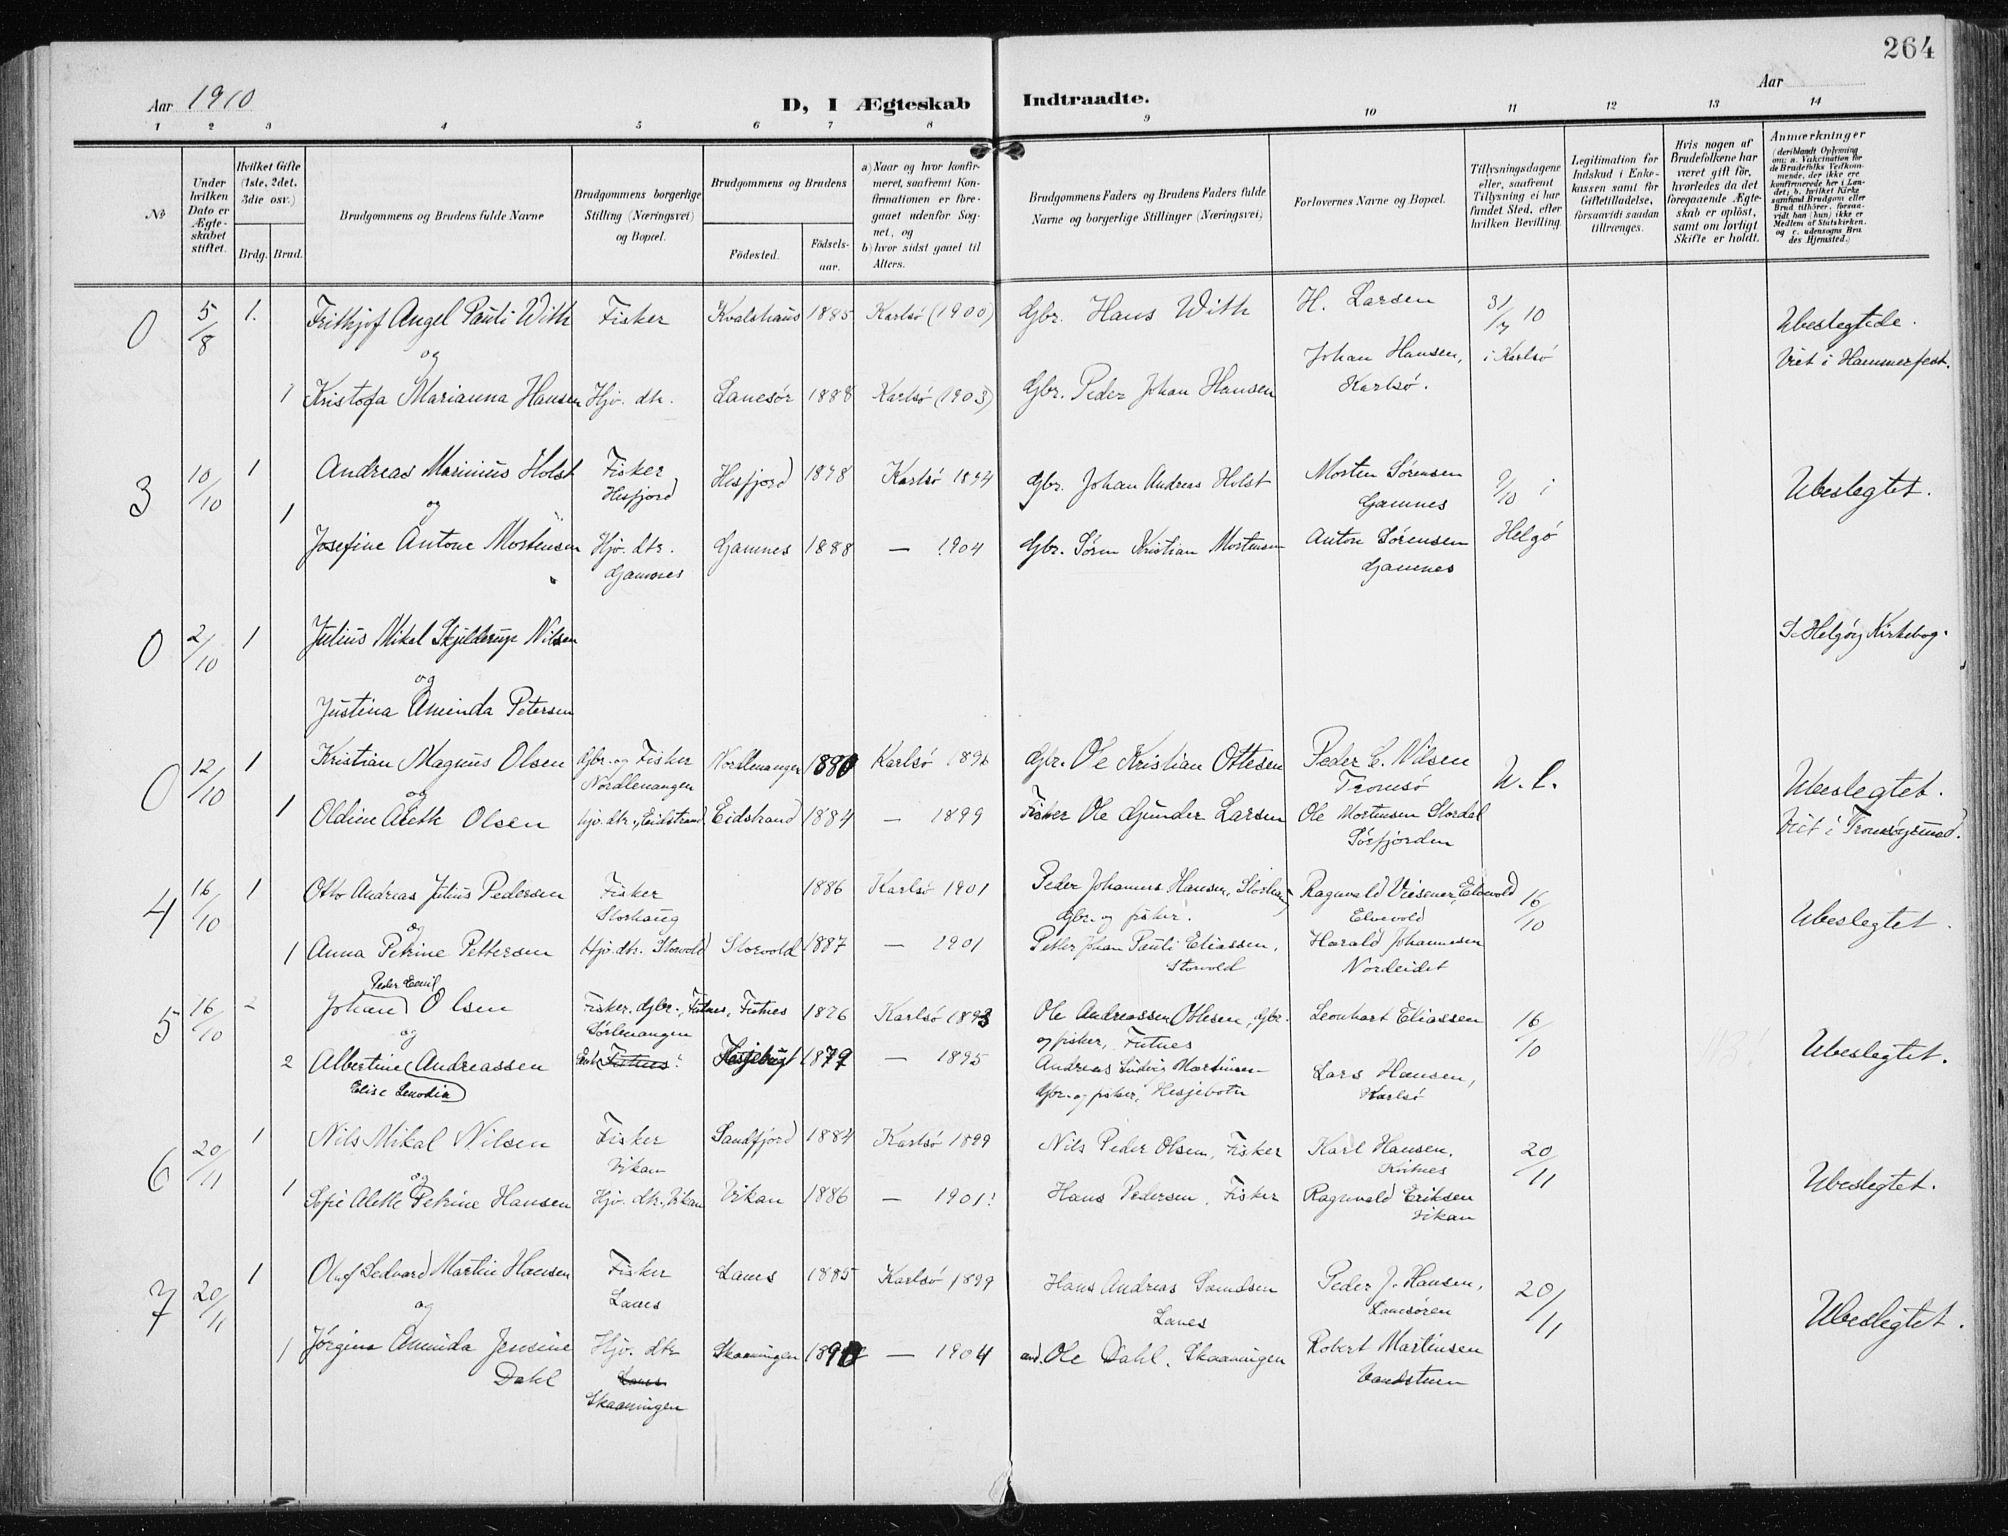 264
Aar 1910
D, I Ægteskab Indtraadte.
Aar
1 2 3 4 5 6 7 8 9 10 11 12 13 14
No
Under hvilken Dato er Ægteskabet stiftet.
Hvilket Gifte (1ste, 2det, 3die osv.)
Brdg. Brud.
Brudgommens og Brudens fulde Navne
Brudgommens borgerlige Stilling (Næringsvei) og Bopœl.
Brudgommens og Brudens
Födested.
Födselsaar.
a) Naar og hvor konfirmeret, saafremt Konfirmationen er foregaaet udenfor Sognet, og
b) hvor sidst gaaet til Alters.
Brudgommens Faders og Brudens Faders fulde Navne og borgerlige Stillinger (Næringsvei)
Forlovernes Navne og Bopœl.
Tillysningsdagene eller, saafremt Tillysning ei har fundet Sted, efter hvilken Bevilling.
Legitimation for Indskud i Enkekassen samt for Giftetilladelse, forsaavidt saadan tiltrœnges.
Hvis nogen af Brudefolkene har vœret gift för, hvorledes da det foregaaende Ægteskab er oplöst, samt om lovligt Skifte er holdt.
Anmœrkninger
(deriblandt Oplysning om: a. Vakcination for de Brudefolks Vedkommende, der ikke ere konfirmerede her i Landet; b. hvilket Kirkesamfund Brudgom eller Brud tilhörer, forsaavidt han (hun) ikke er Medlem af Statskirken, og c. udensogns Brudes Hjemsted.)
0 5/8 1. Frithjof Angel Pauli With Fisker Kvalshaus 1885 Karlsö (1900) Gbr. Hans With H. Larsen 31/7 10 Ubeslegtede.
og Johan Hansen, i Karlsö Viet i Hammerfest.
1 Kristofa Marianna Hansen Hjv. dtr. Lanesör 1888 Karlsö (1903) Gbr. Peder Johan Hansen Karlsö.
3 10/10 1 Andreas Marinius Holst Fisker Hesfjord Hesfjord 1878 Karlsö 1894 Gbr. Johan Andreas Holst Morten Sörensen Gamnes 9/10 i Ubeslegtet.
og
1 Josefine Antone Mortensen Hjv. dtr. Gamnes Gamnes 1888 — 1904 Gbr. Sören Kristian Mortensen Anton Sörensen Gamnes Helgö
0 2/10 1 Julius Mikal Skjilderup Nilsen S. Helgöy Kirkebog.
og
Justina Aminda Petersen
0 12/10 1 Kristian Magnus Olsen Gbr. og Fisker Nordlenangen Nordlenangen 1880 Karlsö 1896 Gbr. Ole Kristian Ottesen Peder C. Nilsen Tromsö U. L. Ubeslegtet.
og
1 Oldine Aleth Olsen hjv. dtr., Eidstrand Eidstrand 1884 — 1899 Fisker Ole Gunder Larsen Ole Mortensen Stordal Sörfjorden Viet i Tromsöysund.
4 16/10 1 Otto Andreas Julius Pedersen Fisker Storhaug 1886 Karlsö 1901 Peder Johannes Hansen, Storhaug Gbr. og fisker. Ragnvald Viesener, Elvevold Elvevold 16/10 Ubeslegtet.
og
1 Anna Petrine Pettersen Hjv. dtr. Storvold Storvold 1887 — 1901 Petter Johan Pauli Eliassen, Storvold Harald Johannesen Nordeidet
5 16/10 2 Johan Peder Emil Olsen Fisker, Gbr., Futnes, Sörlenangen Futnes 1876 Karlsö 1893 Ole Andreassen Ottesen, Gbr. og fisker, Futnes Leonhart Eliassen 16/10 Ubeslegtet.
og
2 Albertine Elise Lenodia Andreassen Enke Futnes Hesjebugt 1879 — 1895 Andreas Ludvig Martinsen Gbr. og fisker, Hesjebotn Lars Hansen, Karlsö
6 20/11 1 Nils Mikal Nilsen Fisker Vikan Sandfjord 1884 Karlsö 1899 Nils Peder Olsen, Fisker Karl Hansen, Kvitnes 20/11 Ubeslegtet.
og
1 Sofie Aleth Petrine Hansen Hjv. dtr., Vikan Vikan 1886 — 1901 Hans Pedersen, Fisker Ragnvald Eriksen Vikan
7 20/11 1 Oluf Sedvard Martin Hansen Fisker Lanes Lanes 1885 Karlsö 1899 Hans Andreas Samdsen Lanes Peder J. Hansen, Lanesören 20/11 Ubeslegtet.
og
1 Jörgine Aminda Jensine Dahl Hjv. dtr Lanes Skaaningen Skaaningen 1890 — 1904 Ole Dahl, Skaaningen Robert Martinsen